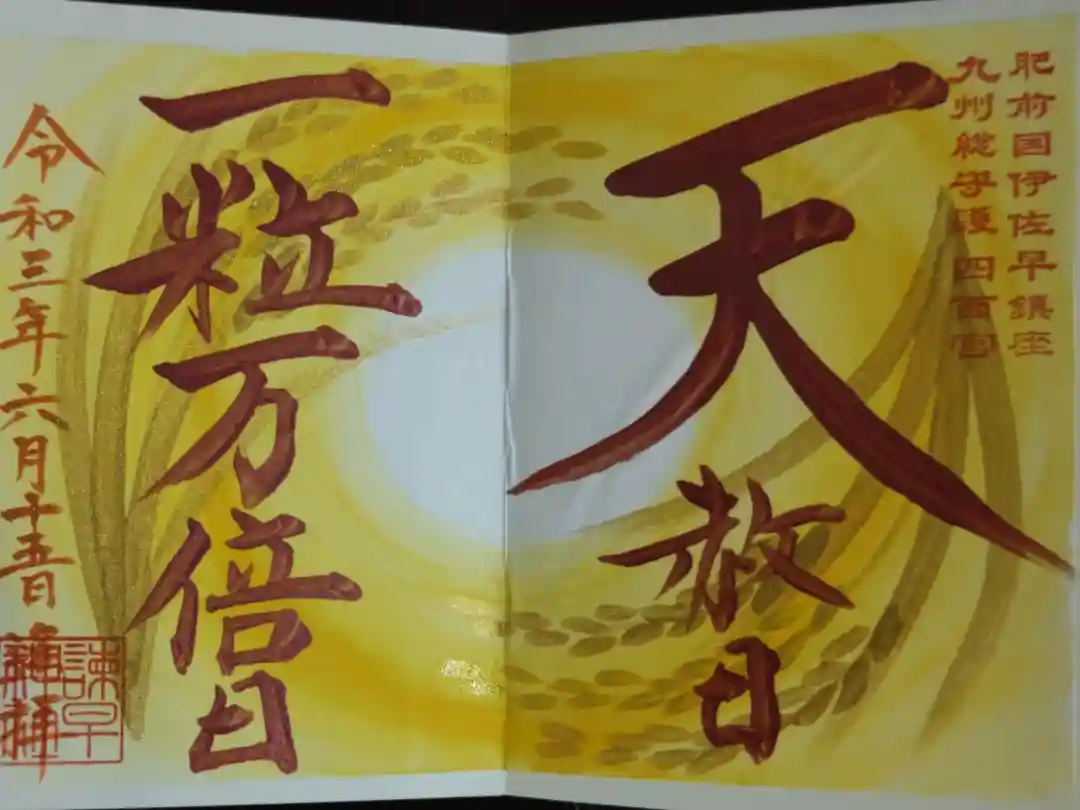 肥前国伊佐早鎮座
九州総守護 四面宮
天赦日
一粒万倍日
令和三年六月十五日
諫早神社